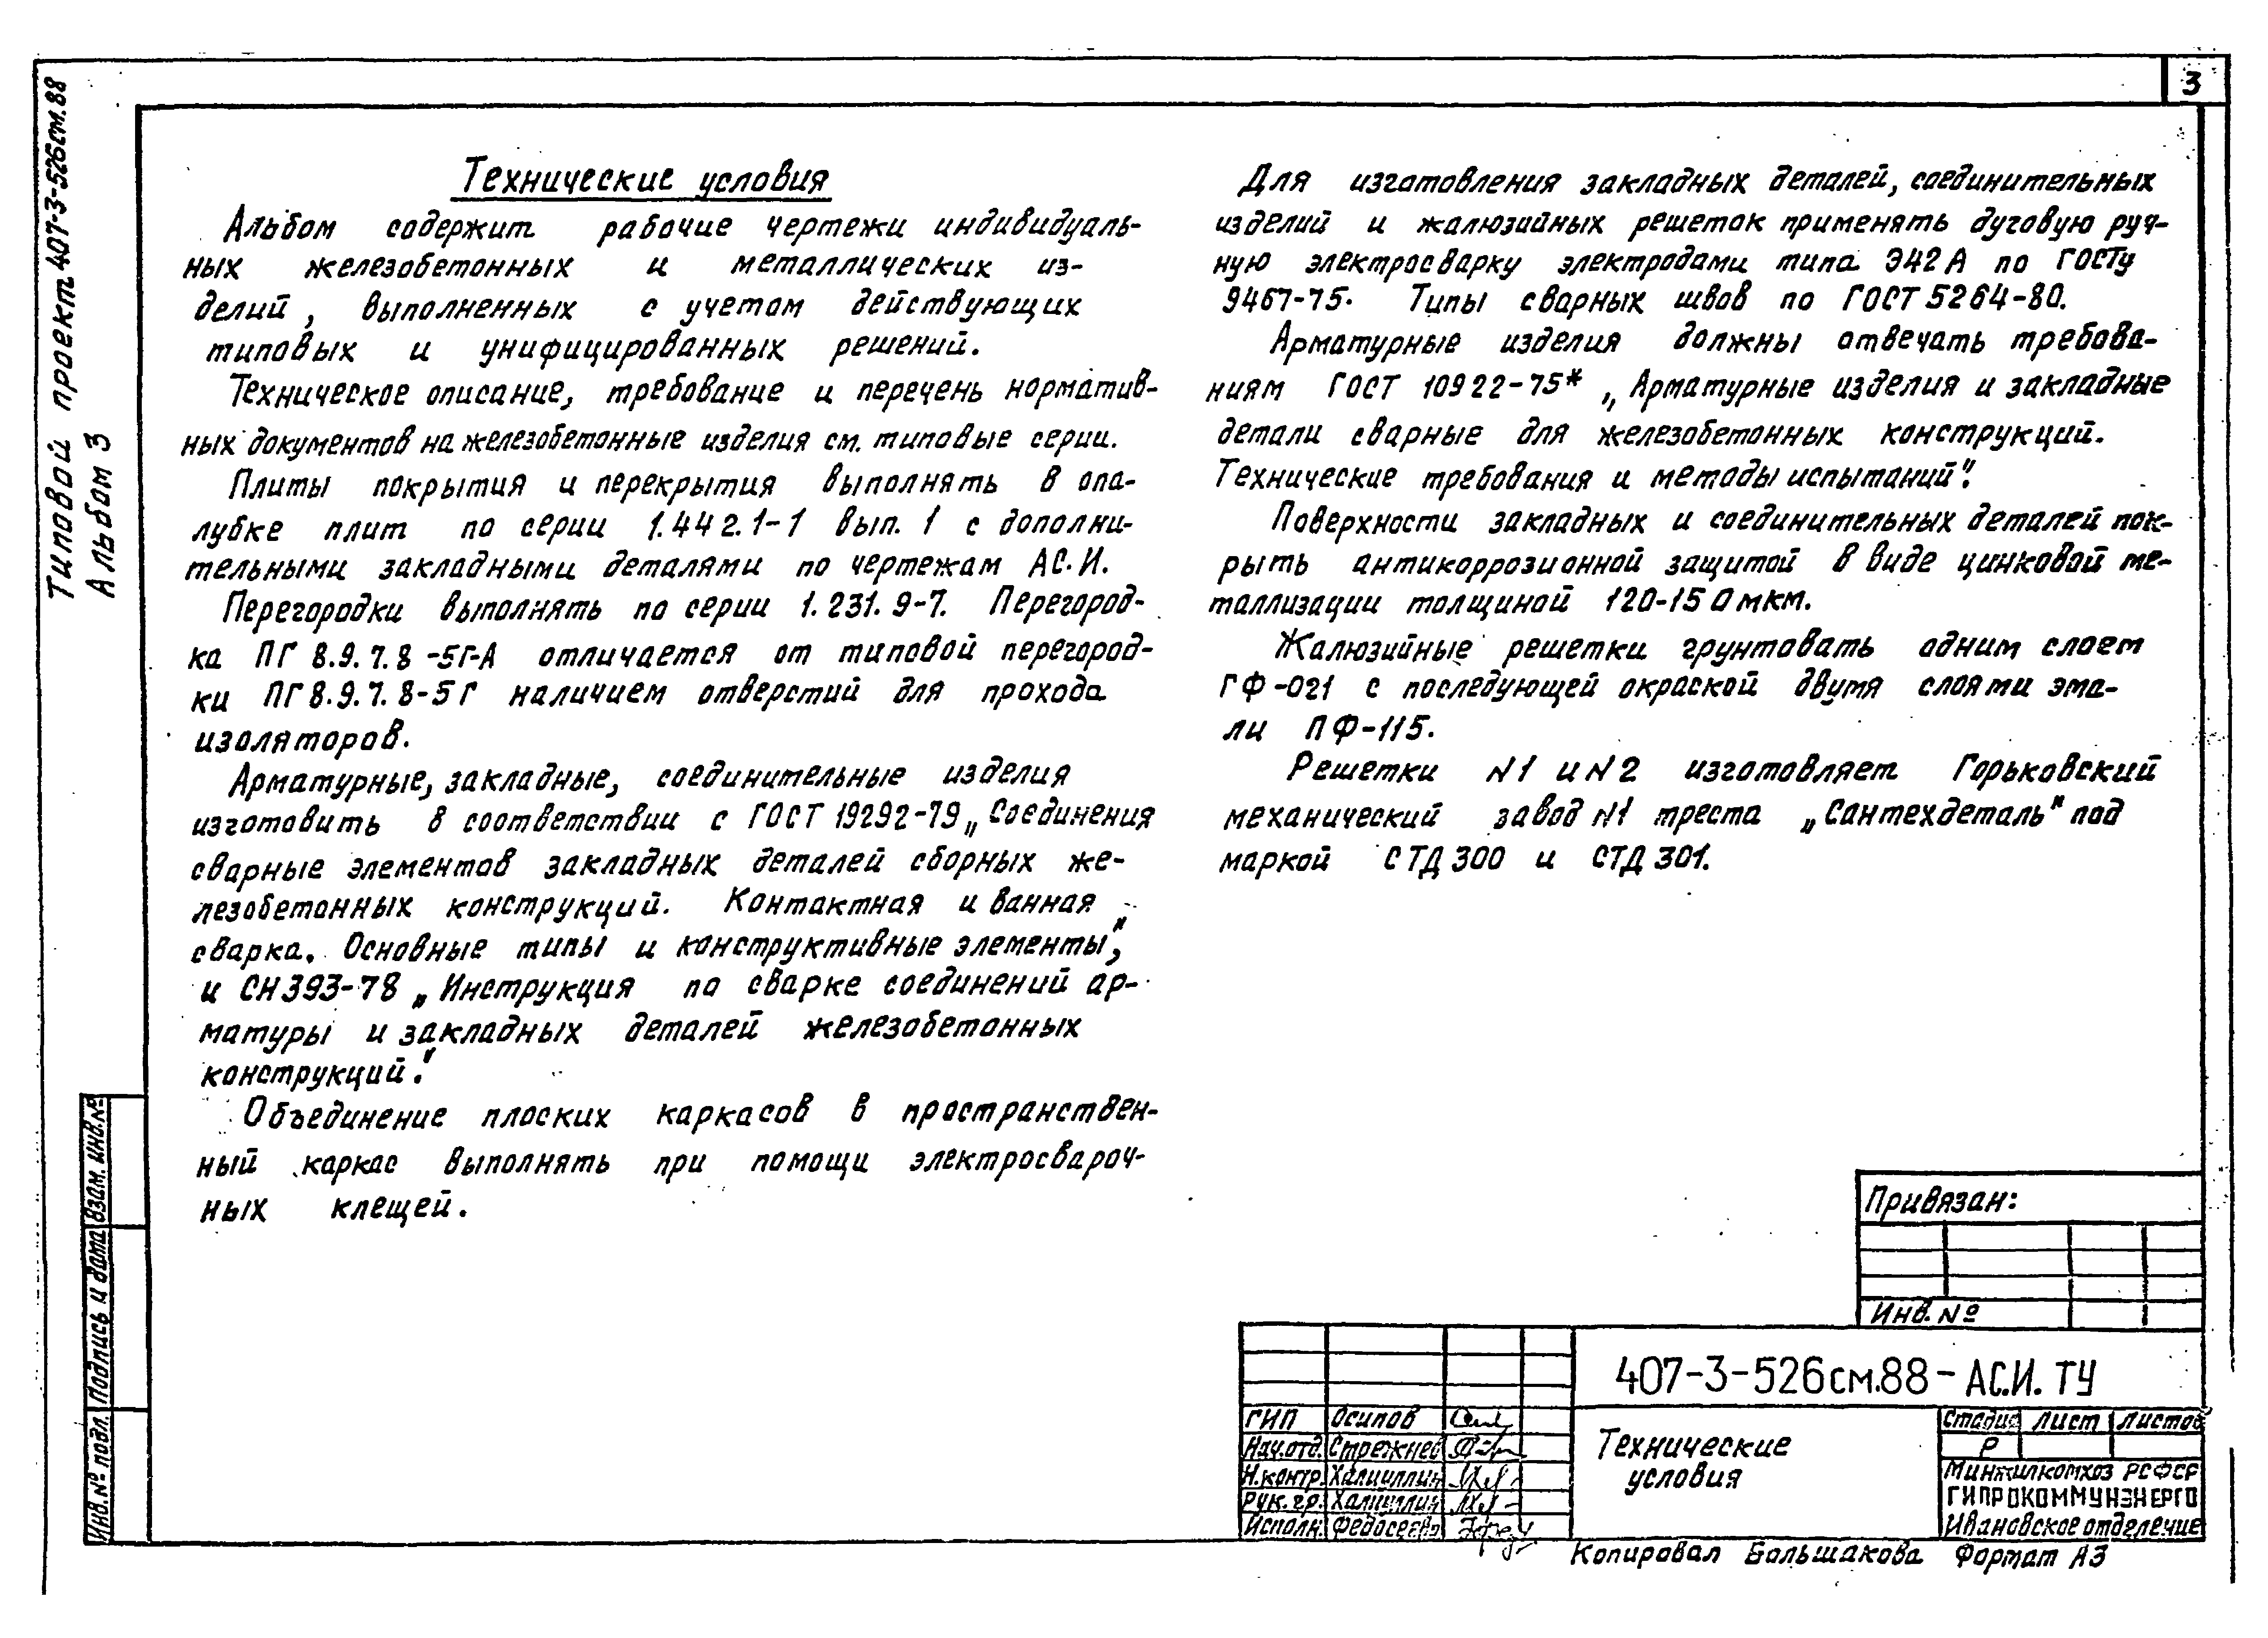 3
Типовой проект 407-3-526см.88
Альбом 3
Технические условия
Альбом содержит рабочие чертежи индивидуаль-
ных железобетонных и металлических из-
делий, выполненных с учетом действующих
типовых и унифицированных решений.
Техническое описание, требование и перечень норматив-
ных документов на железобетонные изделия см. типовые серии.
Плиты покрытия и перекрытия выполнять в опа-
лубке плит по серии 1.442.1-1 вып. 1 с дополни-
тельными закладными деталями по чертежам АС.И.
Перегородки выполнять по серии 1.231.9-7. Перегород-
ка ПГ 8.9.7.8-5Г-А отличается от типовой перегород-
ки ПГ 8.9.7.8-5Г наличием отверстий для прохода
изоляторов.
Арматурные, закладные, соединительные изделия
изготовить в соответствии с ГОСТ 19292-79 „Соединения
сварные элементов закладных деталей сборных же-
лезобетонных конструкций. Контактная и ванная
сварка. Основные типы и конструктивные элементы",
и СН 393-78 „Инструкция по сварке соединений ар-
матуры и закладных деталей железобетонных
конструкций".
Объединение плоских каркасов в пространствен-
ный каркас выполнять при помощи электросвароч-
ных клещей.
Для изготовления закладных деталей, соединительных
изделий и жалюзийных решеток применять дуговую руч-
ную электросварку электродами типа Э42А по ГОСТу
9467-75. Типы сварных швов по ГОСТ 5264-80.
Арматурные изделия должны отвечать требова-
ниям ГОСТ 10922-75* „Арматурные изделия и закладные
детали сварные для железобетонных конструкций.
Технические требования и методы испытаний".
Поверхности закладных и соединительных деталей пок-
рыть антикоррозионной защитой в виде цинковой ме-
таллизации толщиной 120-150мкм.
Жалюзийные решетки грунтовать одним слоем
ГФ-021 с последующей окраской двумя слоями эма-
ли ПФ-115.
Решетки N1 и N2 изготовляет Горьковский
механический завод N1 треста „Сантехдеталь" под
маркой СТД 300 и СТД 301.
Взам. инв.№
Подпись и дата
Инв.№ подл.
Привязан:
Инв. №
407-3-526см.88-АС.И.ТУ
ГИП Осипов
Нач.отд. Стрежнев
Н.контр. Халиуллин
Рук.гр. Халиуллин
Исполн.
Технические
условия
Стадия Лист Листов
Р
Минжилкомхоз РСФСР
ГИПРОКОММУНЭНЕРГО
Ивановское отделение
Копировал Большакова Формат А3